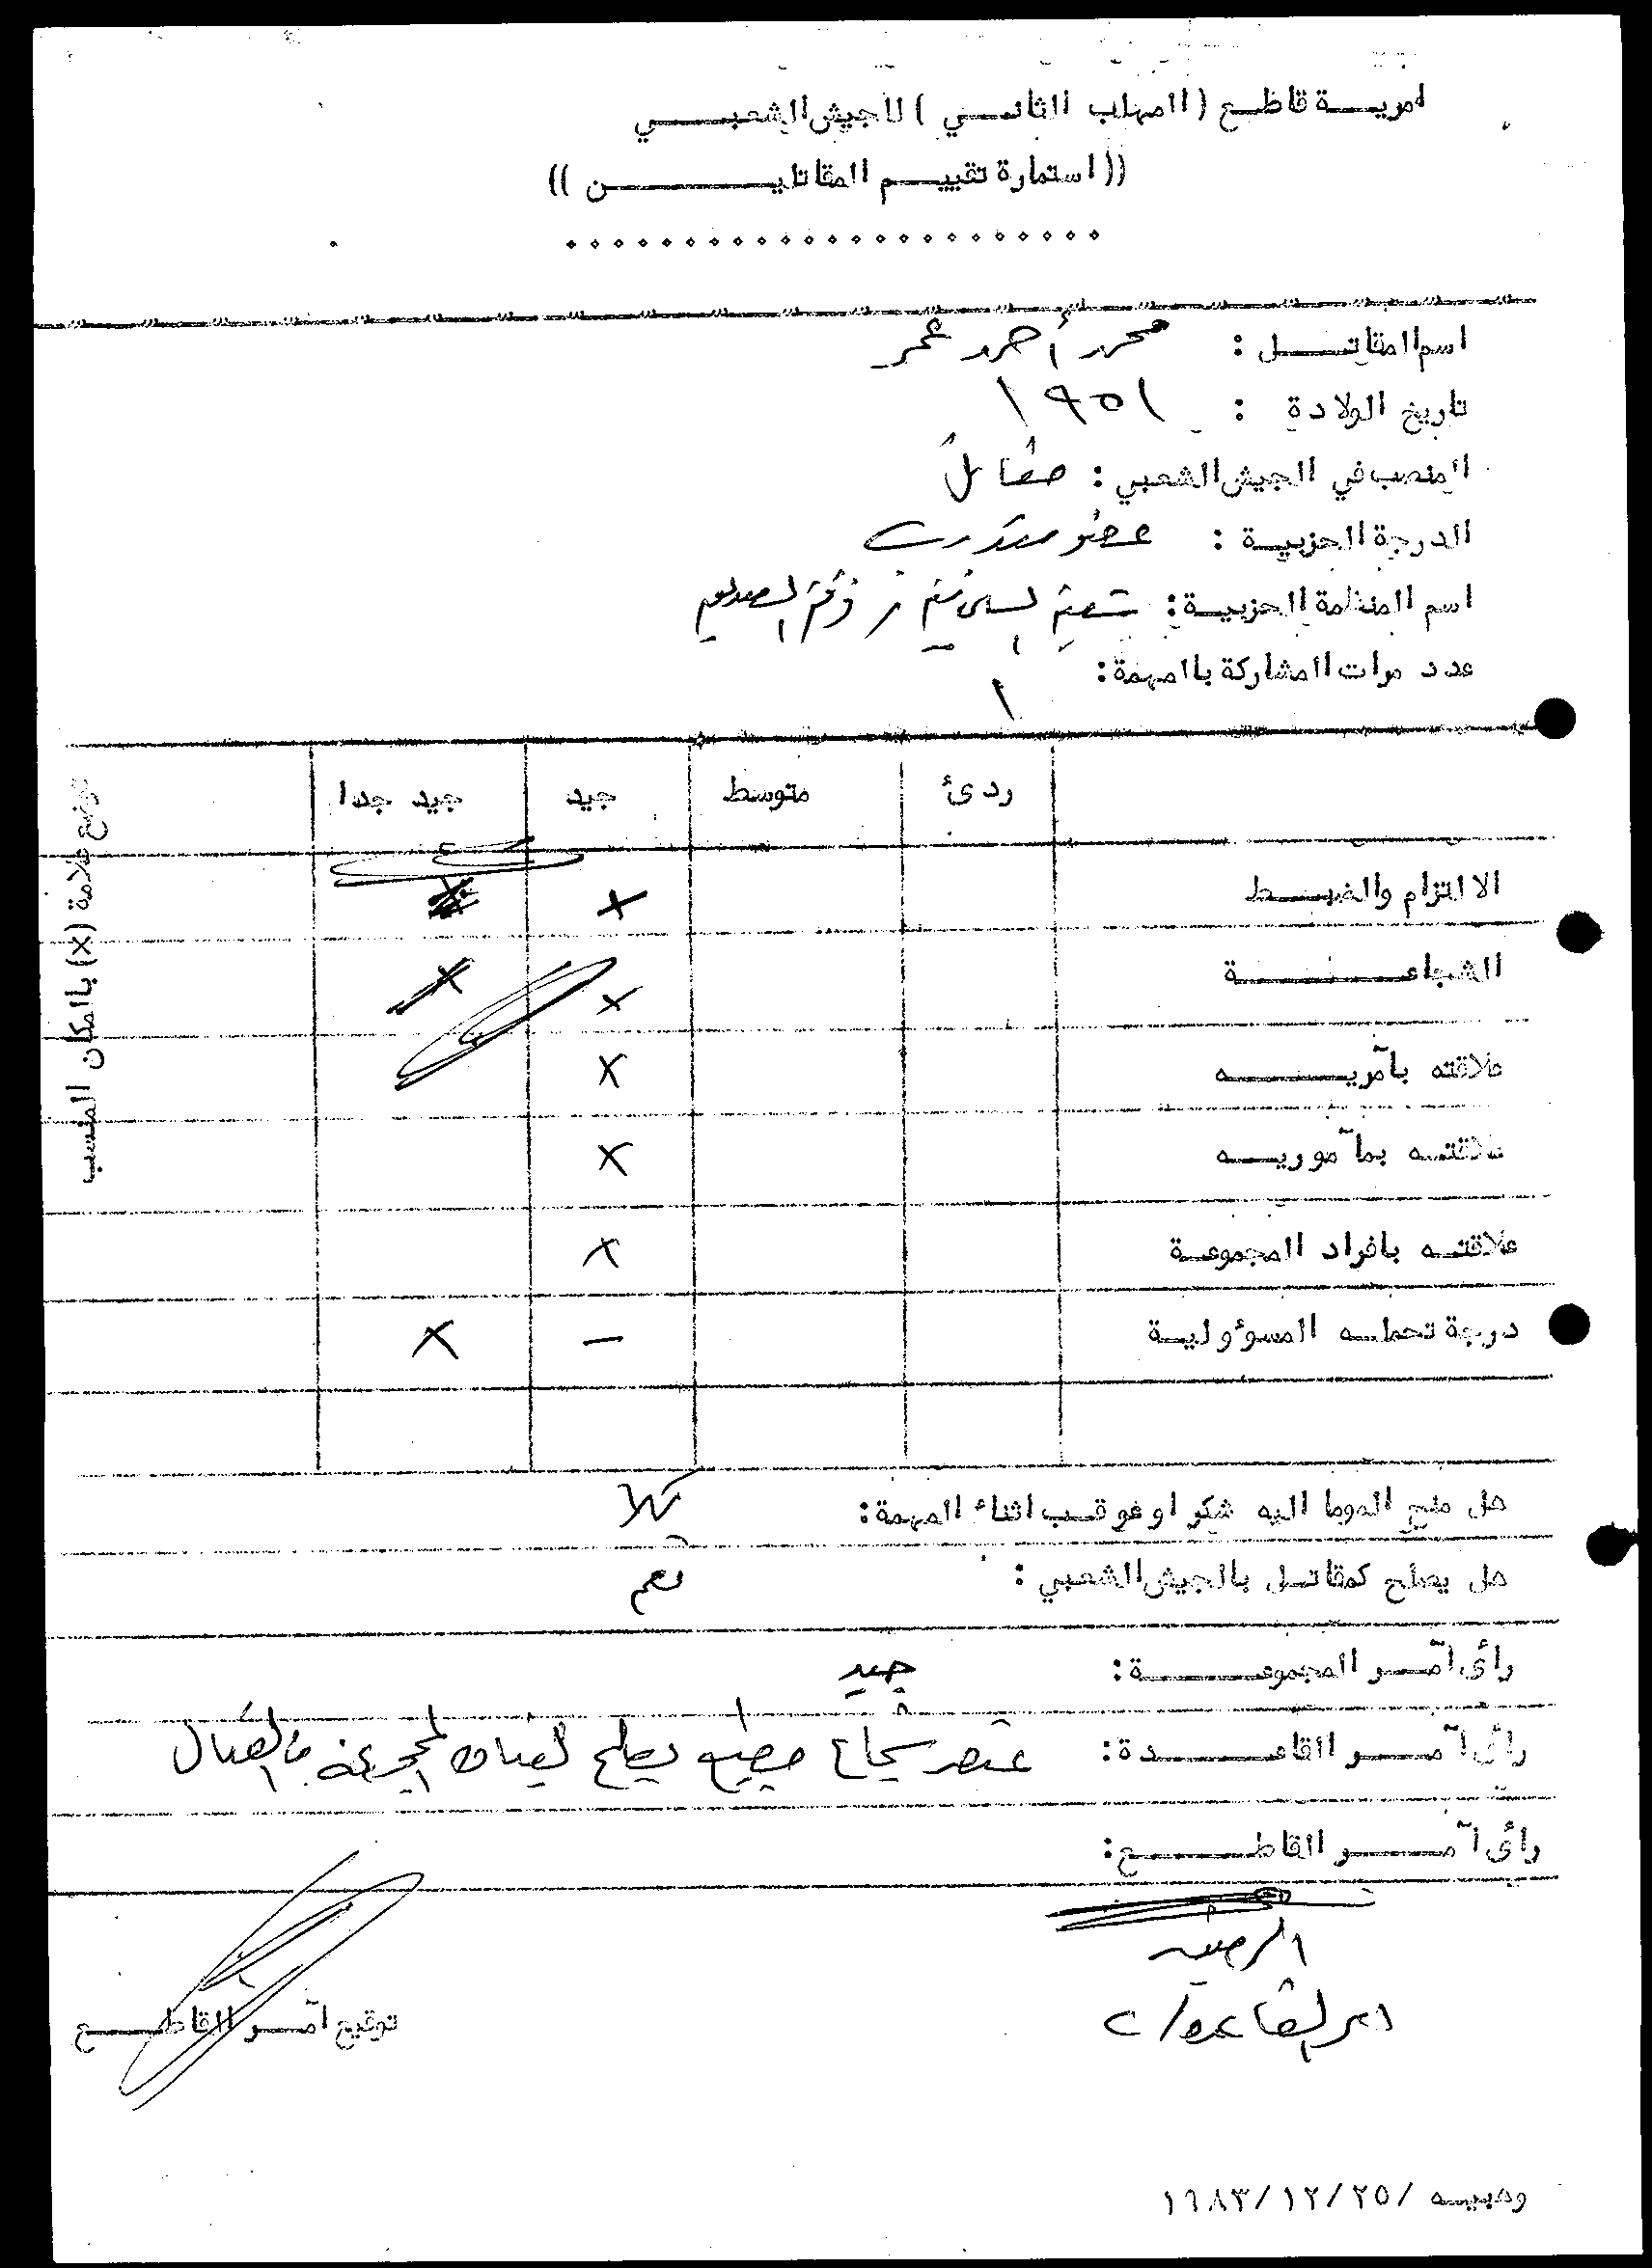 امرية قاطع (المهلب الثاني) للجيش الشعبي
((استمارة تقييم المقاتلين))
اسم المقاتل : محمد أحمد عمر
تاريخ الولادة : ١٩٥١
المنصب في الجيش الشعبي : مقاتل
الدرجة الحزبية : عضو متدرب
اسم المنظمة الحزبية : شعبة
عدد مرات المشاركة بالمهمة : ١
ردئ متوسط جيد جيد جدا
الالتزام والضبط X
الشجاعة X
علاقته بآمريه X
علاقته بمآموريه X
علاقته بافراد المجموعة X
درجة تحمله المسوؤولية — X
توضع علامة (x) بالمكان المنسب
هل منح الموما اليه شكر او عوقب اثناء المهمة : كلا
هل يصلح كمقاتل بالجيش الشعبي : نعم
رأى آمر المجموعة : جيد
رأى آمر القاعدة : عنصر شجاع مطيع يصلح لقيادة المجموعة في القتال
رأى آمر القاطع :
الرفيق
امر القاعدة / ٢
توقيع آمر القاطع
وهبيه / ١٩٨٣/١٢/٢٥